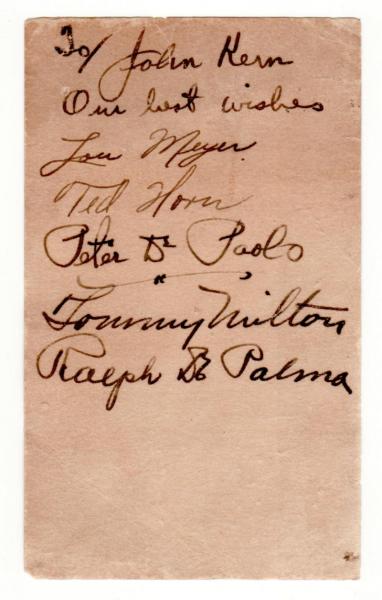 To/ John Kern
Our best wishes
Lou Meyer
Ted Horn
Peter De Paolo
" "
Tommy Milton
Ralph De Palma